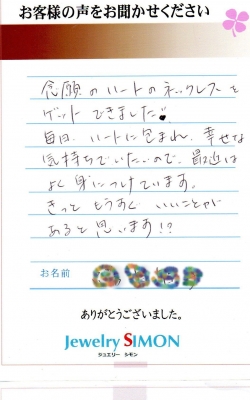 お客様の声をお聞かせください
念願のハートのネックレスを
ゲットできました
毎日、ハートに包まれ、幸せな
気持ちでいたいので、最近は
よく身につけています。
きっと もうすぐ いいことが
あると思います!?
お名前
ありがとうございました。
Jewelry SIMON
ジュエリー シモン